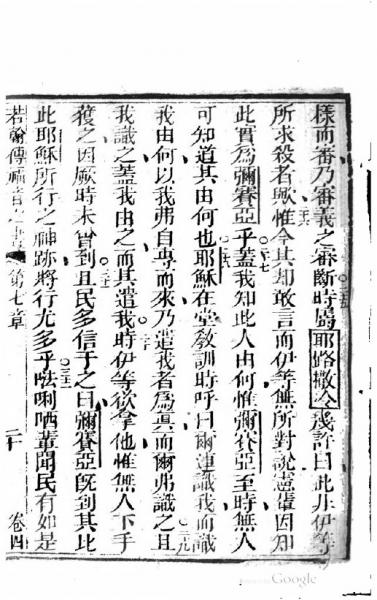 樣而審乃審義之審斷時屬耶路撒冷幾許曰此非伊等
所求殺者歟惟今其却敢言而伊等無所對說憲輩因知
此實為彌賽亞乎蓋我知此人由何惟彌賽亞至時無人
可知道其由何也耶穌在堂教訓時呼曰爾連識我而識
我由何以我弗自專而來乃遣我者為真而爾弗識之且
我識之蓋我由之而其遣我時伊等欲拿他惟無人下手
於之因厥時未曾到且民多信于之曰彌賽亞既到其比
此耶穌所行之神跡將行尤多乎𠵽唎哂輩聞民有如是
若翰傳福音之書 第七章 二十 卷四
Google